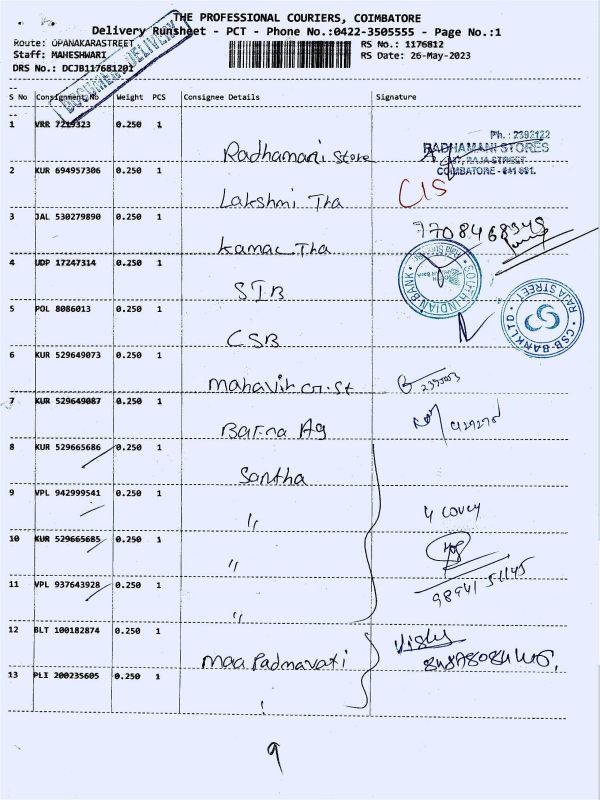 THE PROFESSIONAL COURIERS, COIMBATORE
Delivery Runsheet - PCT - Phone No.:0422-3505555 - Page No.:1
Route: OPANAKARASTREET
RS No.: 1176812
Staff: MAHESHWARI
RS Date: 26-May-2023
DRS No.: DCJB117681201
DOCUMENT DELIVERY
S No Consignment No Weight PCS Consignee Details Signature
1 VRR 7219323 0.250 1
Radhamani Store
Ph.: 2392122
RADHAMANI STORES
RAJA STREET
COIMBATORE - 641 001.
2 KUR 694957306 0.250 1
Lakshmi Tha CIS
3 JAL 530279890 0.250 1
Kamal Tha
7708468348
4 UDP 17247314 0.250 1
SIB
SOUTH INDIAN BANK
5 POL 8086013 0.250 1
CSB
CSB BANK LTD RAJA STREET
6 KUR 529649073 0.250 1
Mahavir
7 KUR 529649087 0.250 1
Barna Ag
8 KUR 529665686 0.250 1
Santha
9 VPL 942999541 0.250 1
"
4 covey
10 KUR 529665685 0.250 1
"
11 VPL 937643928 0.250 1
"
98941 51145
12 BLT 100182874 0.250 1
Maa Padmavati
13 PLI 200235605 0.250 1
9